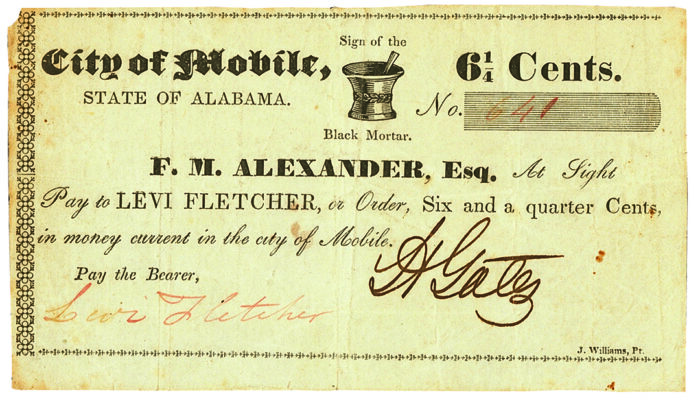 Sign of the
City of Mobile,
6 1/4 Cents.
STATE OF ALABAMA.
No. 641
Black Mortar.
F. M. ALEXANDER, Esq. At Sight
Pay to LEVI FLETCHER, or Order, Six and a quarter Cents,
in money current in the city of Mobile.
Pay the Bearer,
H Gates
Levi Fletcher
J. Williams, Pt.